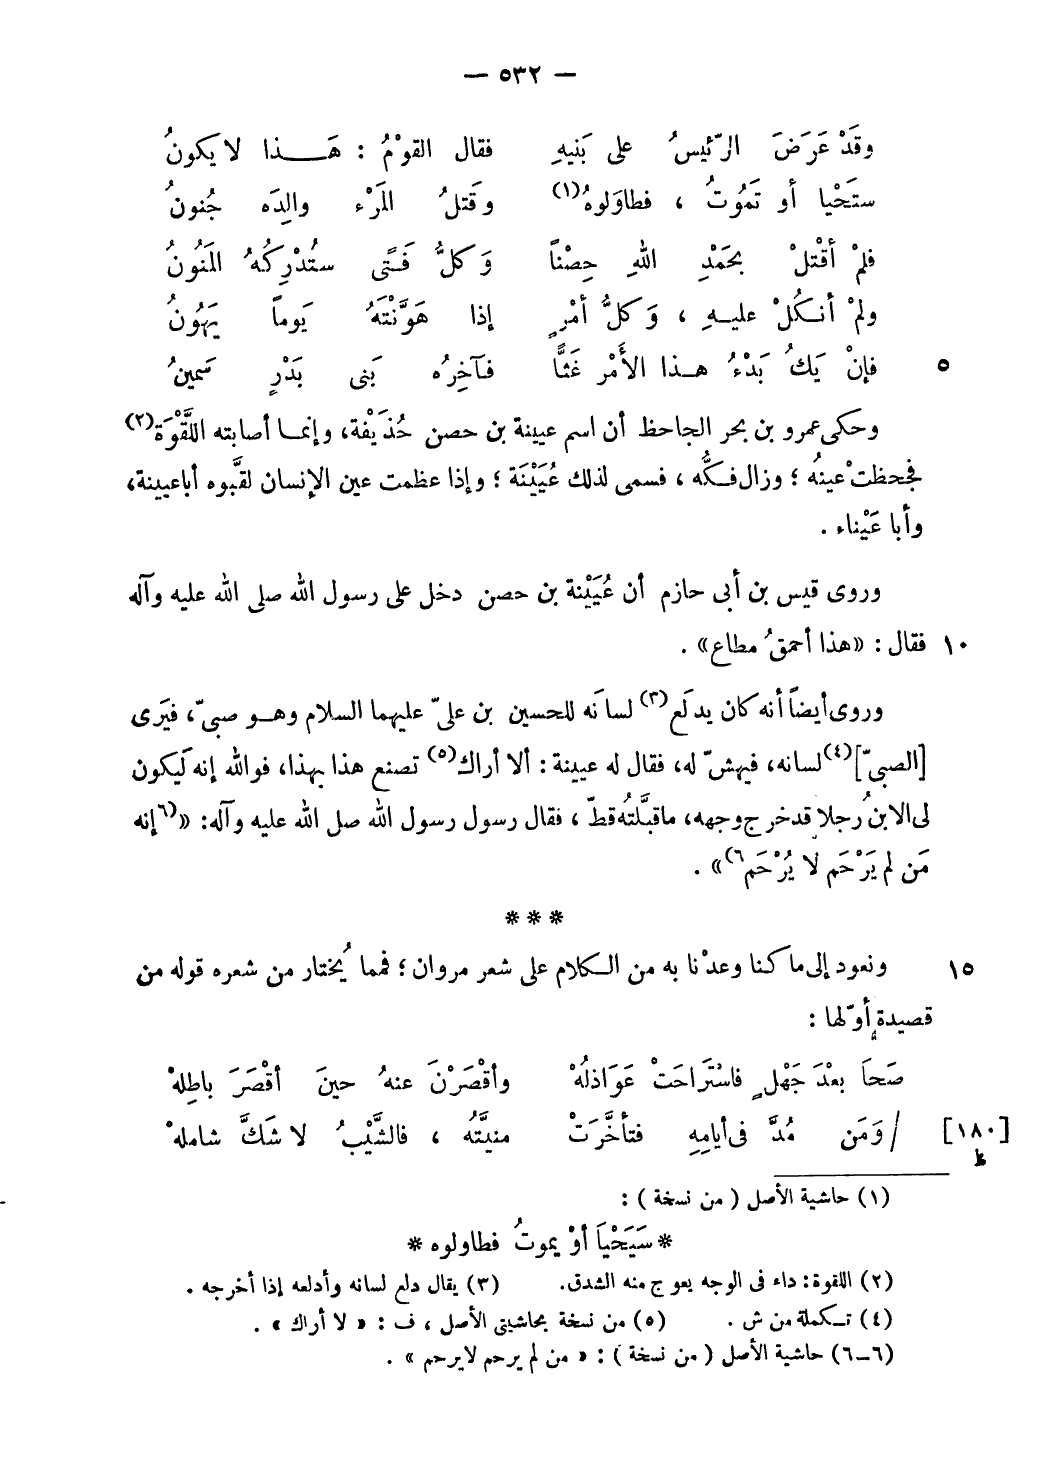 — ٥٣٢ —
وقَدْ عَرَضَ الرّئيسُ على بَنيهِ فقال القوْمُ : هَــذا لا يكونُ
ستَحْيا أو تَمُوتُ ، فطاوَلوهُ(١) وقَتلُ المَرْء والِدَه جُنونُ
فلمْ أقْتلْ بحَمْدِ اللهِ حِصْناً وَكلُّ فَتًى ستُدْرِكُهُ المَنُونُ
ولمْ أنكُلْ عليهِ ، وَكلُّ أمْرٍ إذا هَوَّنْتَهُ يَوماً يَهُونُ
٥ فإنْ يَكُ بَدْءُ هـذا الأَمْر غَثًّا فـآخِرُه بَنى بَدْرٍ سَمينُ
وحكى عمرو بن بحر الجاحظ أن اسم عيينة بن حصن حُذَيْفة، وإنما أصابته اللَّقْوَة(٢)
فجحظتْ عينهُ ؛ وزال فكُّه ، فسمى لذلك عُيَيْنَة ؛ وإذا عظمت عين الإنسان لقَّبوه أبا عيينة،
وأبا عَيْناء .
وروى قيس بن أبى حازم أن عُيَيْنة بن حصن دخل على رسول الله صلى الله عليه وآله
١٠ فقال : «هذا أحمقُ مطاع» .
وروى أيضاً أنه كان يدلَع(٣) لسانَه للحسين بن علىّ عليهما السلام وهـو صبىّ، فيَرى
[الصبىّ](٤) لسانه، فيهشّ له، فقال له عيينة : ألا أراك(٥) تصنع هذا بهذا، فوالله إنه لَيكون
لى الابنُ رجلا قد خرج وجهه، ما قبَّلتُه قطّ ، فقال رسول رسول الله صل الله عليه وآله: «(٦إنه
مَن لم يَرْحَم لا يُرْحَم٦)» .
***
١٥ ونعود إلى ما كنا وعدْنا به من الكلام على شعر مروان ؛ فمما يُختار من شعره قوله من
قصيدةٍ أوّلها :
صَحَا بعْدَ جَهْلٍ فاسْتَراحَتْ عَوَاذلُهْ وأقْصَرْنَ عنهُ حينَ أقْصَرَ باطِلهْ
[١٨٠] / وَمَن مُدَّ فى أيامِهِ فتأخَّرَتْ منيَّتُه ، فالشَّيْبُ لا شَكَّ شاملهْ
ظ
(١) حاشية الأصل ( من نسخة ) :
* سَيَحْيَا أوْ يموتُ فطاولوه *
(٢) اللقوة : داء فى الوجه يعوج منه الشدق. (٣) يقال دلع لسانه وأدلعه إذا أخرجه .
(٤) تكملة من ش . (٥) من نسخة بحاشيتى الأصل ، ف : « لا أراك » .
(٦-٦) حاشية الأصل ( من نسخة ) : « من لم يرحم لايرحم » .